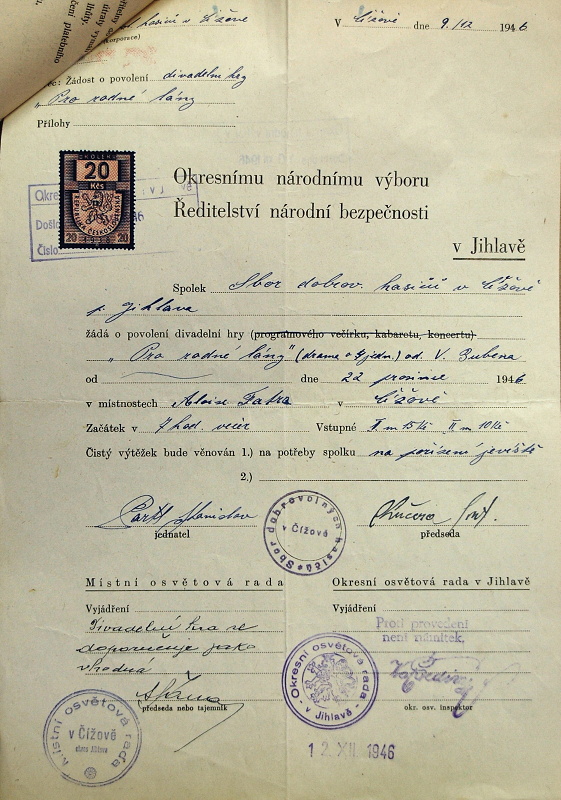 hasičů v Čížově
V Čížově dne 9./XII. 1946
Žádost o povolení divadelní hry
„Pro rodné lány
Přílohy
KOLEK
20
Kčs
REPUBLIKA ČESKOSLOVENSKÁ
20 20
Okres
Došlo 46
Číslo
Okresnímu národnímu výboru
Ředitelství národní bezpečnosti
v Jihlavě
Spolek Sbor dobrov. hasičů v Čížově
p. Jihlava
žádá o povolení divadelní hry (programového večírku, kabaretu, koncertu)
„Pro rodné lány" (drama o 4 jedn.) od V.
od dne 22 prosince 1946
v místnostech Aloise v Čížově
Začátek v 7 hod. večer Vstupné I m 15 Kč II m 10 Kč
Čistý výtěžek bude věnován 1.) na potřeby spolku na pořízení jeviště
2.)
Stanislav
jednatel
Sbor dobrovolných hasičů
v Čížově
Kučera
předseda
Místní osvětová rada
Vyjádření
Divadelní hra se
doporučuje jako
vhodná
předseda nebo tajemník
Místní osvětová rada
v Čížově
okres Jihlava
Okresní osvětová rada v Jihlavě
Vyjádření
Proti provedení
není námitek,
okr. osv. inspektor
Okresní osvětová rada
v Jihlavě
12. XII. 1946